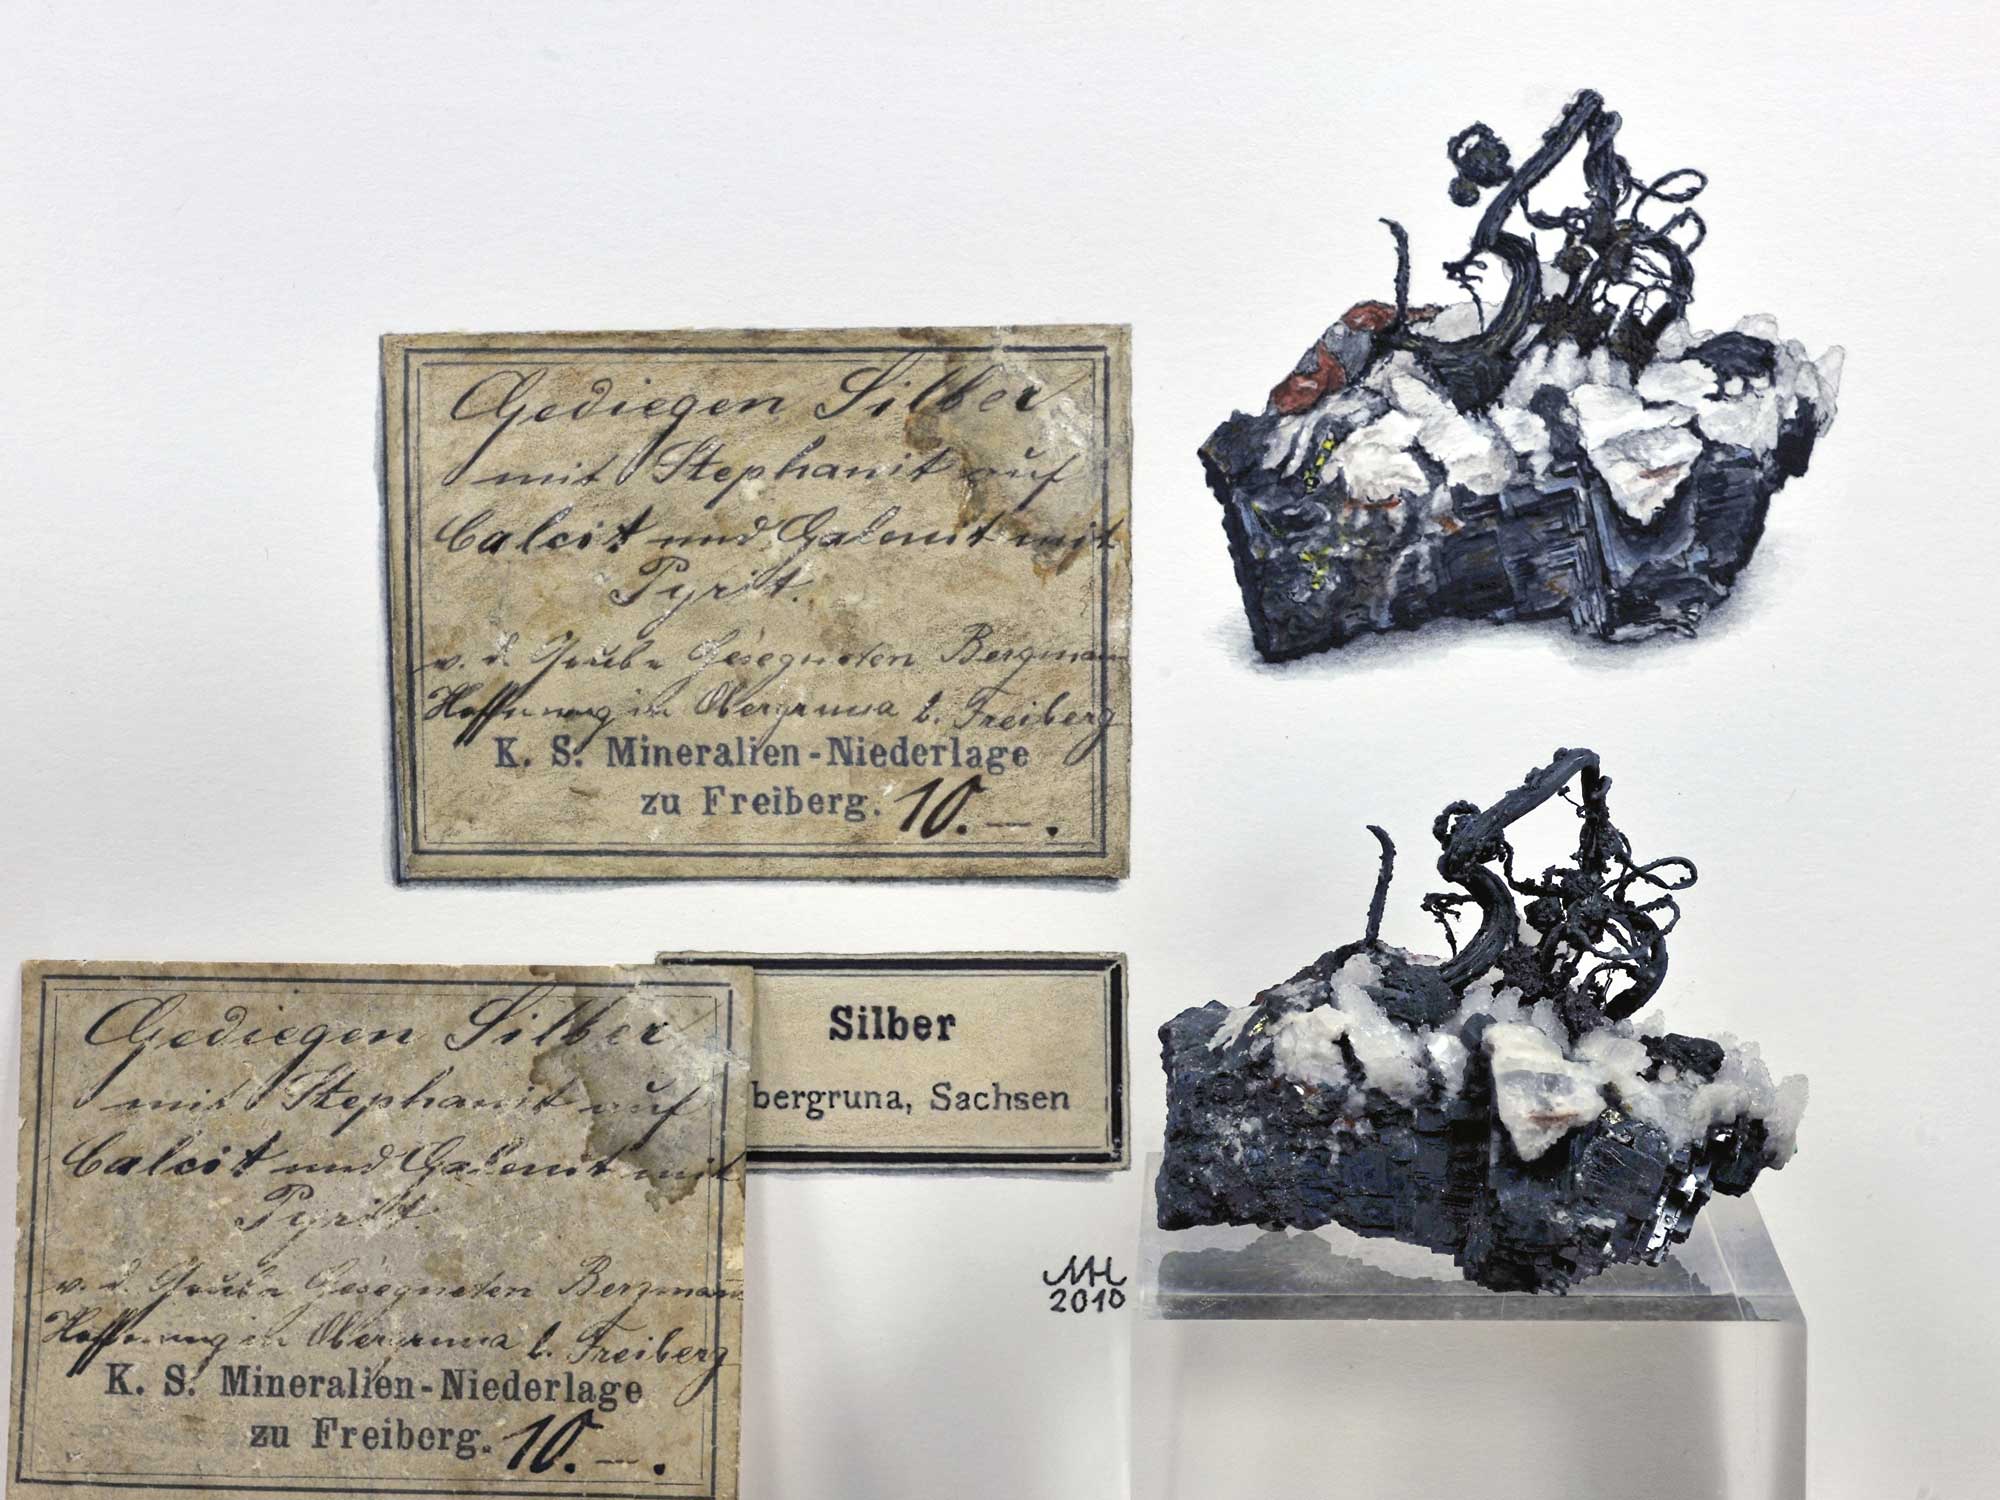 Gediegen Silber
mit Stephanit auf
Calcit und Galenit mit
Pyrit.
v. d. Grube Gesegneten Bergmann
Hoffnung in Obergruna b. Freiberg
K. S. Mineralien-Niederlage
zu Freiberg. 10.—.
Silber
bergruna, Sachsen
Gediegen Silber
mit Stephanit auf
Calcit und Galenit mit
Pyrit.
v. d. Grube Gesegneten Bergmann
Hoffnung in Obergruna b. Freiberg
K. S. Mineralien-Niederlage
zu Freiberg. 10.—.
MH
2010